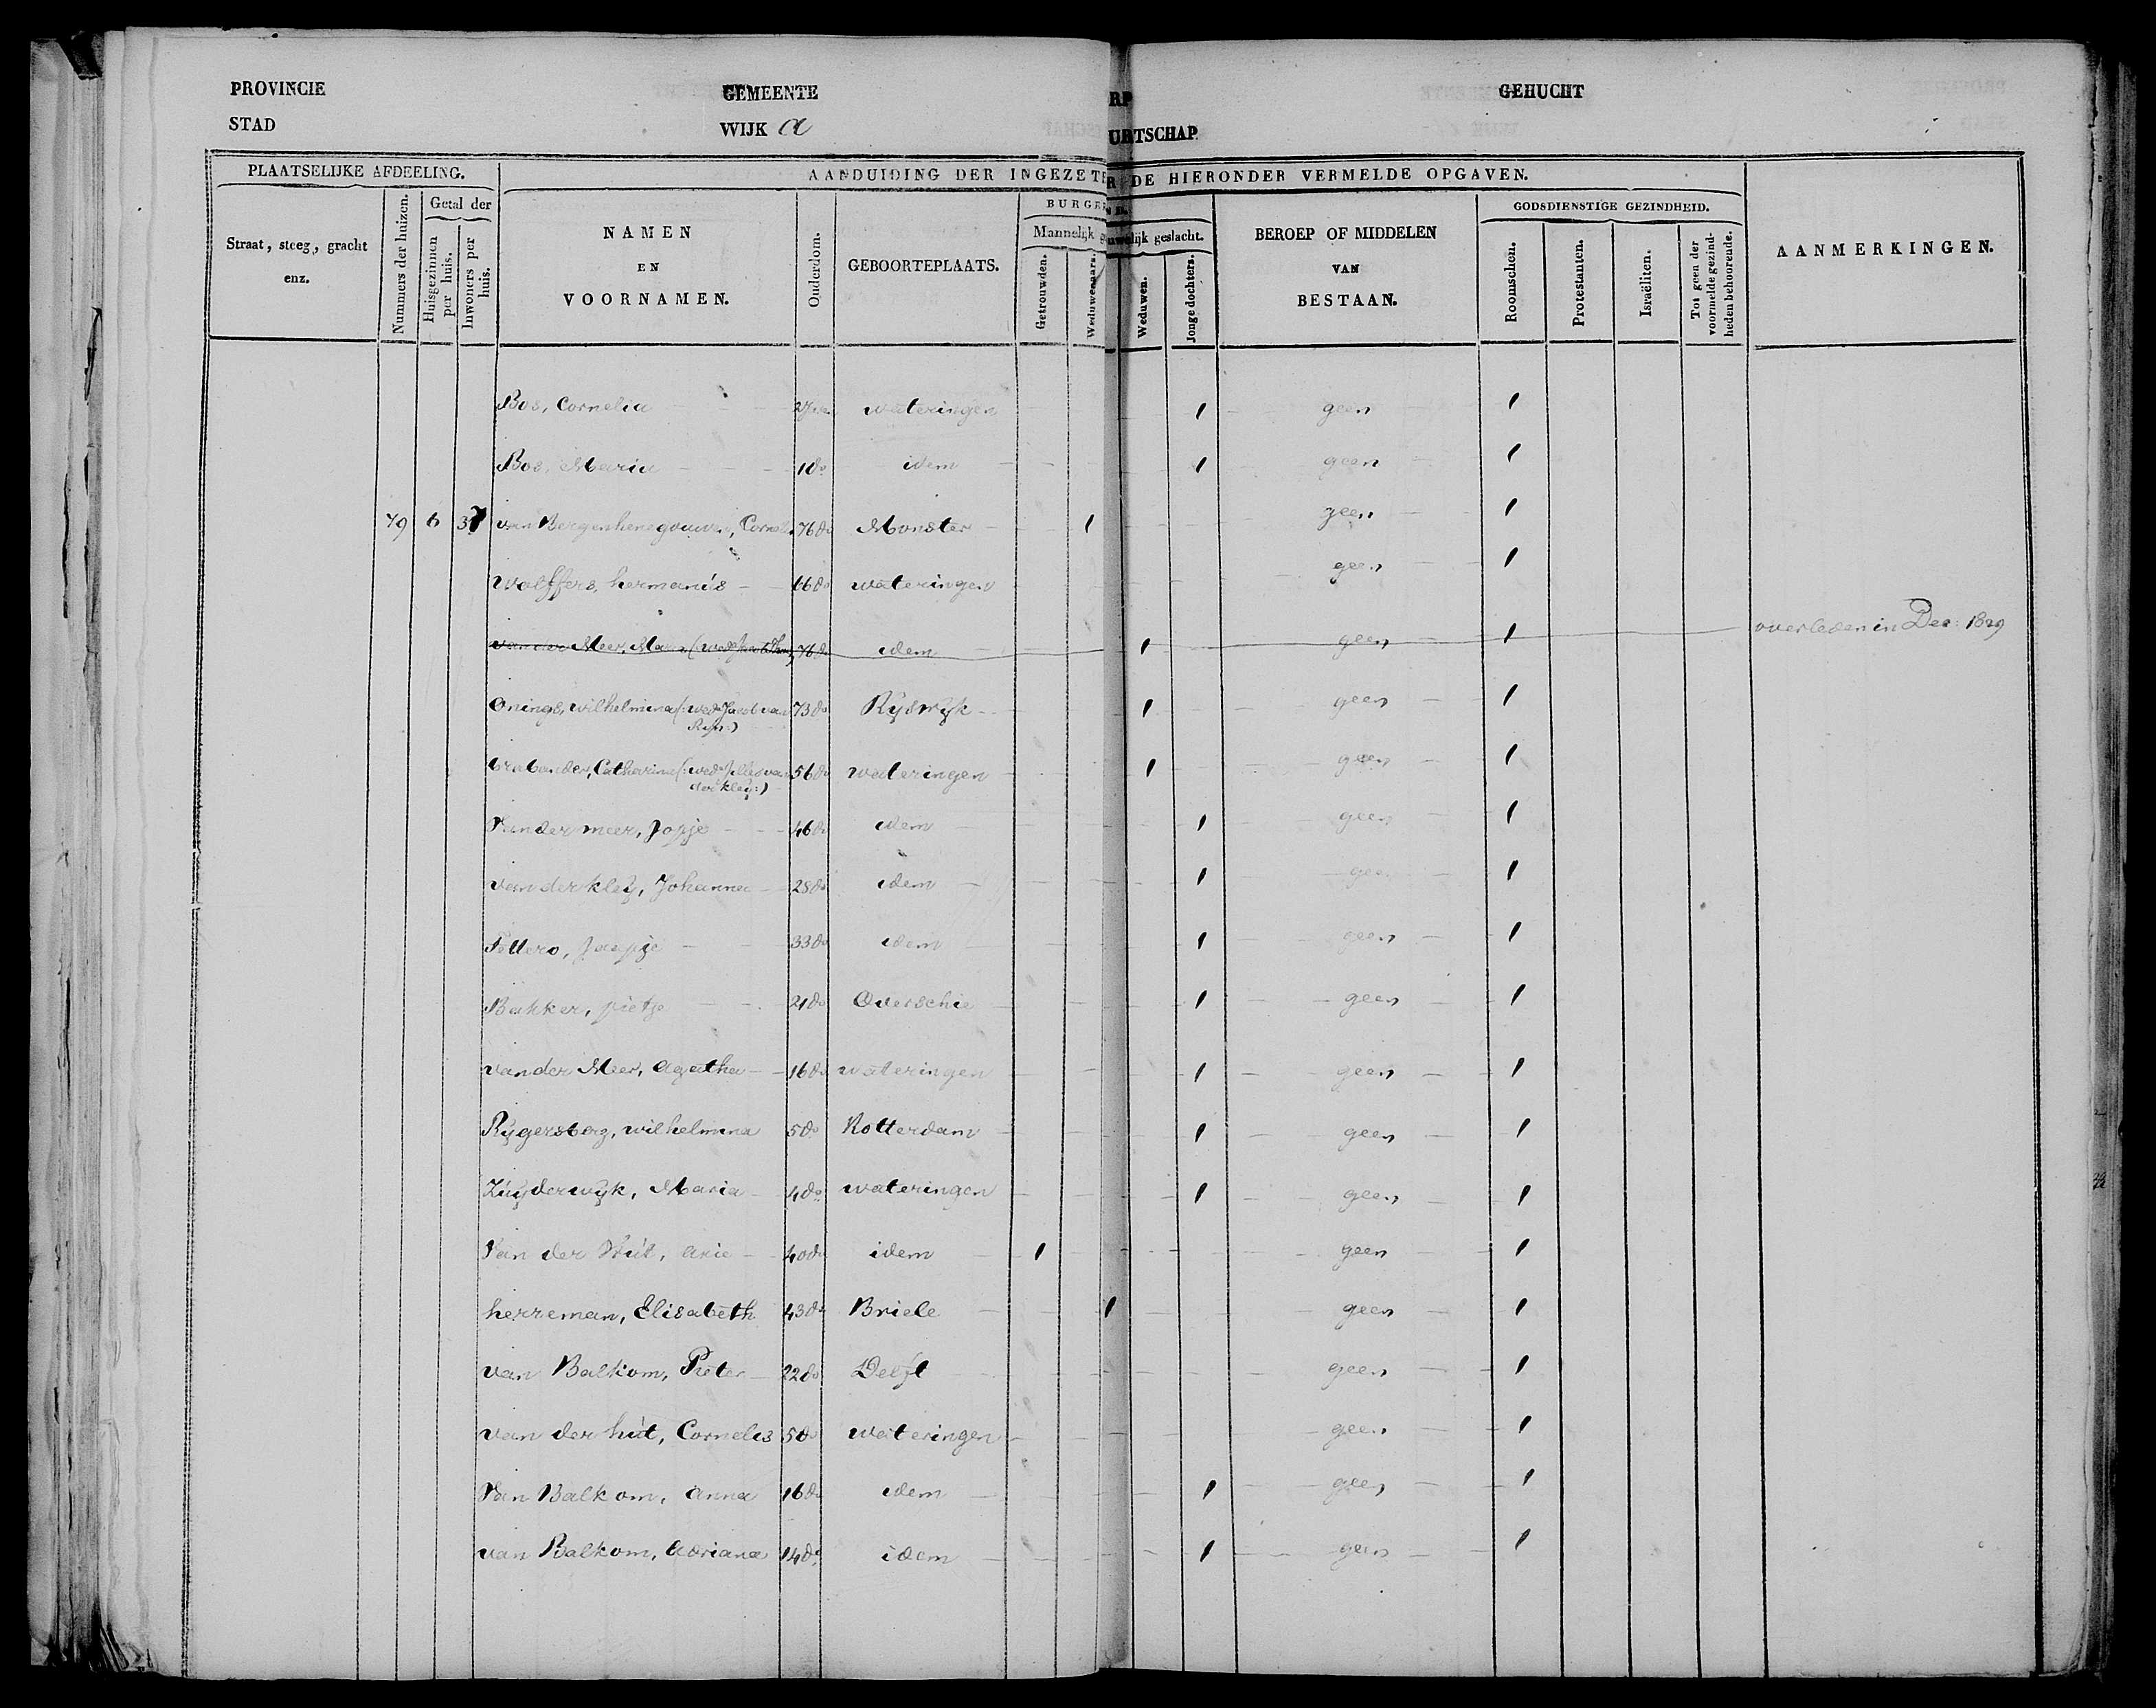 PROVINCIE GEMEENTE RP GEHUCHT
STAD WIJK a URTSCHAP.
PLAATSELIJKE AFDEELING. AANDUIDING DER INGEZETE R DE HIERONDER VERMELDE OPGAVEN.
Straat, steeg, gracht enz.
Nummers der huizen.
Getal der
Huisgezinnen per huis.
Inwoners per huis.
NAMEN
EN
VOORNAMEN.
Ouderdom.
GEBOORTEPLAATS.
BURGE
Mannelijk g
Getrouwden.
Weduwenaars.
lijk geslacht.
Weduwen.
Jonge dochters.
BEROEP OF MIDDELEN
VAN
BESTAAN.
GODSDIENSTIGE GEZINDHEID.
Roomschen.
Protestanten.
Israëliten.
Tot geen der voormelde gezindheden behoorende.
AANMERKINGEN.
Bos, Cornelia 27 wateringen 1 geen 1
Bos, Maria 1 do idem 1 geen 1
79 6 37 van Bergenhenegouwen, Cornel 76 do Monster 1 geen 1
Wolffers, hermanús 66 do wateringen geen 1
van der Meer, Maria (wede 76 do idem 1 geen 1 overleden in Dec: 1829
Onings, wilhelmina (: wede Jacob van Rijn:) 73 do Rijswijk 1 geen 1
brabander, Catharina (: wede Jilles van der kleij:) 56 do wateringen 1 geen 1
Van der meer, Jopje 46 do idem 1 geen 1
van der kleij, Johanna 28 do idem 1 geen 1
Jaapje 33 do idem 1 geen 1
Bakker, pietje 21 do Overschie 1 geen 1
van der Meer, agatha 16 do wateringen 1 geen 1
Rijgersberg, wilhelmina 5 do Rotterdam 1 geen 1
Zúijderwijk, Maria 4 do wateringen 1 geen 1
Van der Hút, arie 40 do idem 1 geen 1
herreman, Elisabeth 43 do Briele 1 geen 1
van Balkom, Pieter 22 do Delft geen 1
van der hút, Cornelis 5 do wateringen geen 1
Van Balkom, anna 16 do idem 1 geen 1
van Balkom, adriana 14 do idem 1 geen 1